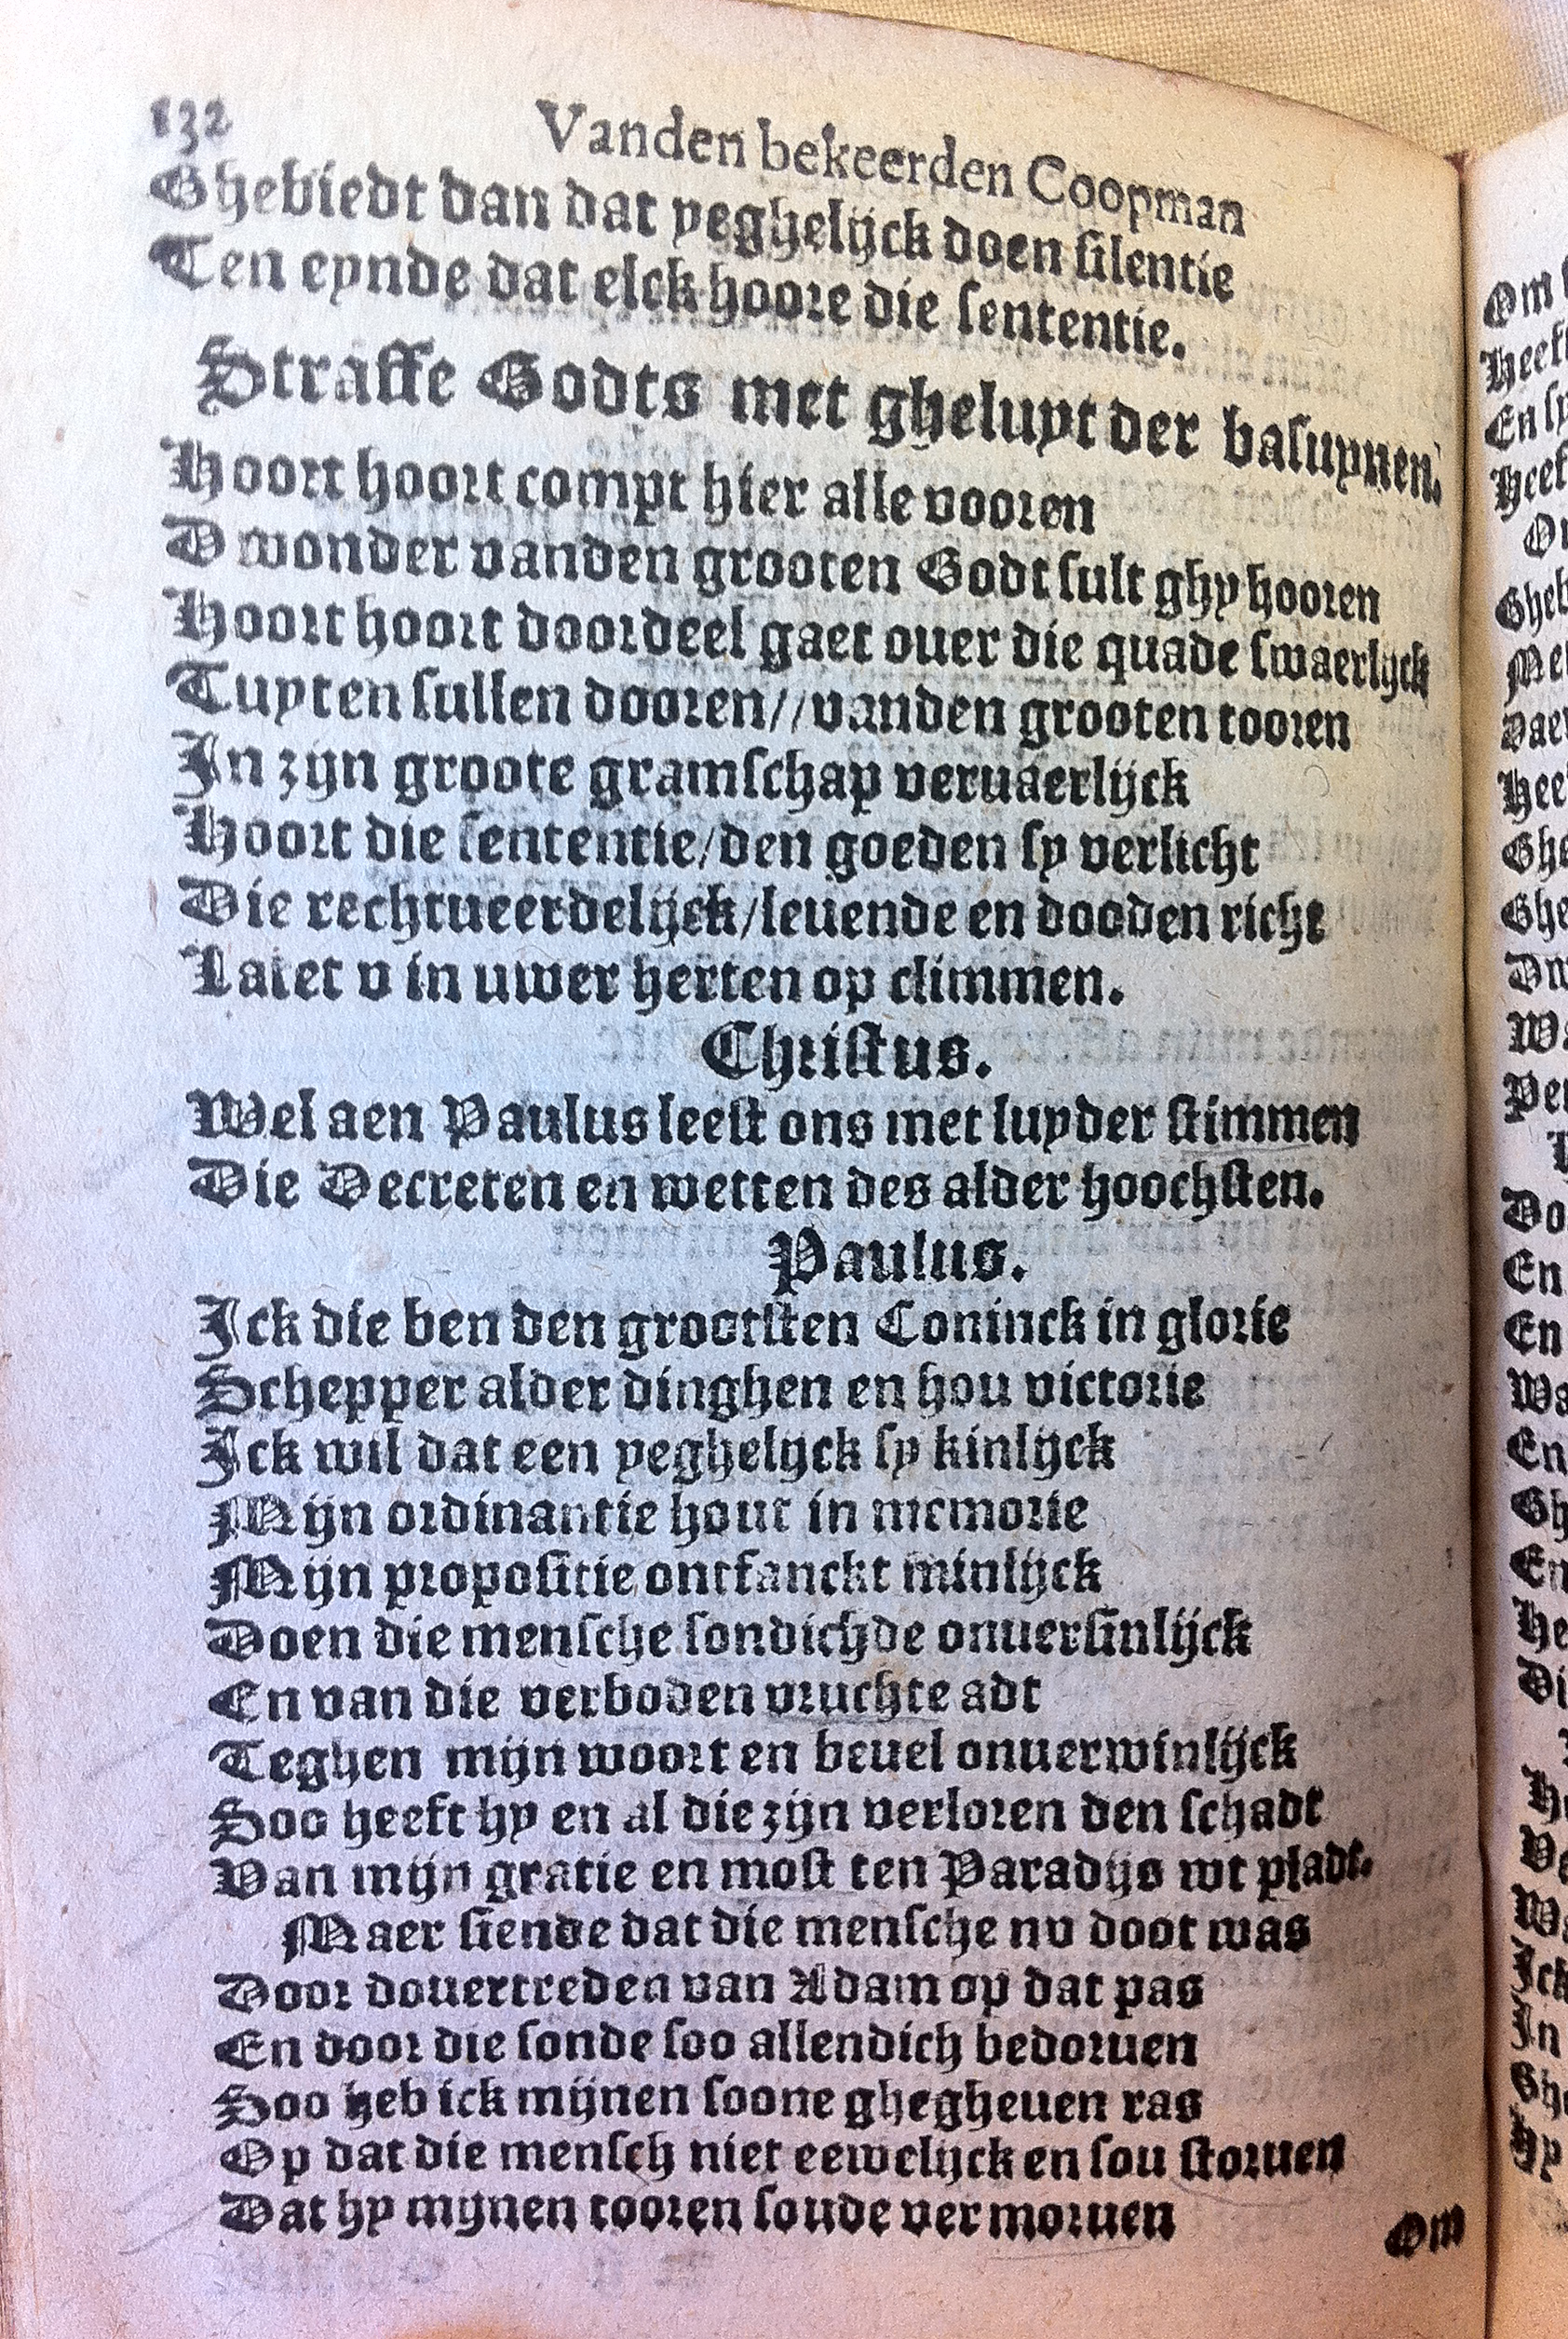 132 Vanden bekeerden Coopman
Ghebiedt dan dat yeghelijck doen silentie
Ten eynde dat elck hoore die sententie.
Straffe Godts met gheluyt der basuynen.
Hoort hoort compt hier alle vooren
D wonder vanden grooten Godt sult ghy hooren
Hoort hoort doordeel gaet ouer die quade swaerlijck
Tuyten sullen dooren//vanden grooten tooren
In zijn groote gramschap veruaerlijck
Hoort die sententie/den goeden sy verlicht
Die rechtueerdelijck/leuende en dooden richt
Laiet v in uwer herten op climmen.
Christus.
Wel aen Paulus leest ons met luyder stimmen
Die Decreten en wetten des alder hoochsten.
Paulus.
Ick die ben den grootsten Coninck in glorie
Schepper alder dinghen en hou victorie
Ick wil dat een yeghelijck sy kinlijck
Mijn ordinantie hout in memorie
Mijn propositie ontfanckt minlijck
Doen die mensche sondichde onuersinlijck
En van die verboden vruchte adt
Teghen mijn woort en beuel onuerwinlijck
Soo heeft hy en al die zijn verloren den schadt
Van mijn gratie en most ten Paradijs wt pladt.
Maer siende dat die mensche nv doot was
Door douertreden van Adam op dat pas
En door die sonde soo allendich bedoruen
Soo heb ick mijnen soone ghegheuen ras
Op dat die mensch niet eewelijck en sou storuen
Dat hy mijnen tooren soude vermoruen
Om